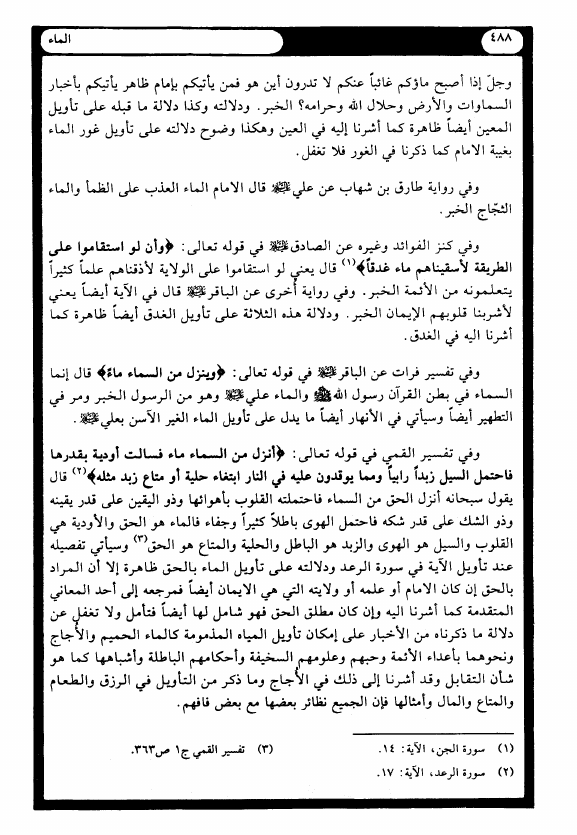 ٤٨٨
الماء
وجلّ إذا أصبح ماؤكم غائباً عنكم لا تدرون أين هو فمن يأتيكم بإمام ظاهر يأتيكم بأخبار
السماوات والأرض وحلال الله وحرامه؟ الخبر. ودلالته وكذا دلالة ما قبله على تأويل
المعين أيضاً ظاهرة كما أشرنا إليه في العين وهكذا وضوح دلالته على تأويل غور الماء
بغيبة الامام كما ذكرنا في الغور فلا تغفل.
وفي رواية طارق بن شهاب عن علي عليه السلام قال الامام الماء العذب على الظمأ والماء
الثجّاج الخبر.
وفي كنز الفوائد وغيره عن الصادق عليه السلام في قوله تعالى: ﴿وأن لو استقاموا على
الطريقة لأسقيناهم ماء غدقاً﴾(١) قال يعني لو استقاموا على الولاية لأذقناهم علماً كثيراً
يتعلمونه من الأئمة الخبر. وفي رواية أُخرى عن الباقر عليه السلام قال في الآية أيضاً يعني
لأشربنا قلوبهم الإيمان الخبر. ودلالة هذه الثلاثة على تأويل الغدق أيضاً ظاهرة كما
أشرنا اليه في الغدق.
وفي تفسير فرات عن الباقر عليه السلام في قوله تعالى: ﴿وينزل من السماء ماءً﴾ قال إنما
السماء في بطن القرآن رسول الله ﷺ والماء علي عليه السلام وهو من الرسول الخبر ومر في
التطهير أيضاً وسيأتي في الأنهار أيضاً ما يدل على تأويل الماء الغير الآسن بعلي عليه السلام.
وفي تفسير القمي في قوله تعالى: ﴿أنزل من السماء ماء فسالت أودية بقدرها
فاحتمل السيل زبداً رابياً ومما يوقدون عليه في النار ابتغاء حلية أو متاع زبد مثله﴾(٢) قال
يقول سبحانه أنزل الحق من السماء فاحتملته القلوب بأهوائها وذو اليقين على قدر يقينه
وذو الشك على قدر شكه فاحتمل الهوى باطلاً كثيراً وجفاء فالماء هو الحق والأودية هي
القلوب والسيل هو الهوى والزبد هو الباطل والحلية والمتاع هو الحق(٣) وسيأتي تفصيله
عند تأويل الآية في سورة الرعد ودلالته على تأويل الماء بالحق ظاهرة إلا أن المراد
بالحق إن كان الامام أو علمه أو ولايته التي هي الايمان أيضاً فمرجعه إلى أحد المعاني
المتقدمة كما أشرنا اليه وإن كان مطلق الحق فهو شامل لها أيضاً فتأمل ولا تغفل عن
دلالة ما ذكرناه من الأخبار على إمكان تأويل المياه المذمومة كالماء الحميم والأُجاج
ونحوهما بأعداء الأئمة وحبهم وعلومهم السخيفة وأحكامهم الباطلة وأشباهها كما هو
شأن التقابل وقد أشرنا إلى ذلك في الأُجاج وما ذكر من التأويل في الرزق والطعام
والمتاع والمال وأمثالها فإن الجميع نظائر بعضها مع بعض فافهم.
(١) سورة الجن، الآية: ١٤.
(٢) سورة الرعد، الآية: ١٧.
(٣) تفسير القمي ج١ ص٣٦٣.